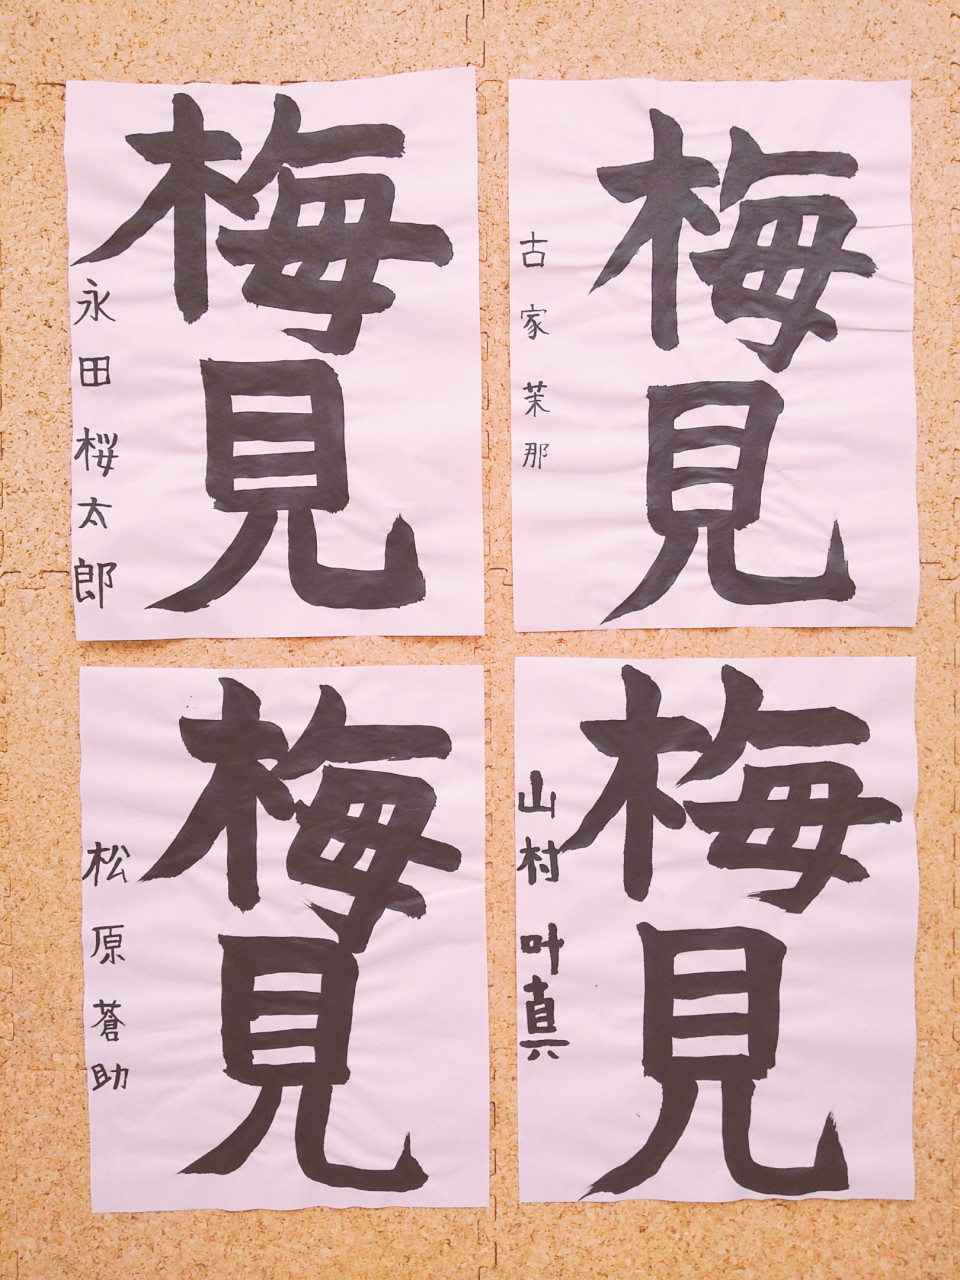 梅見
永田桜太郎
梅見
古家茉那
梅見
松原蒼助
梅見
山村叶真